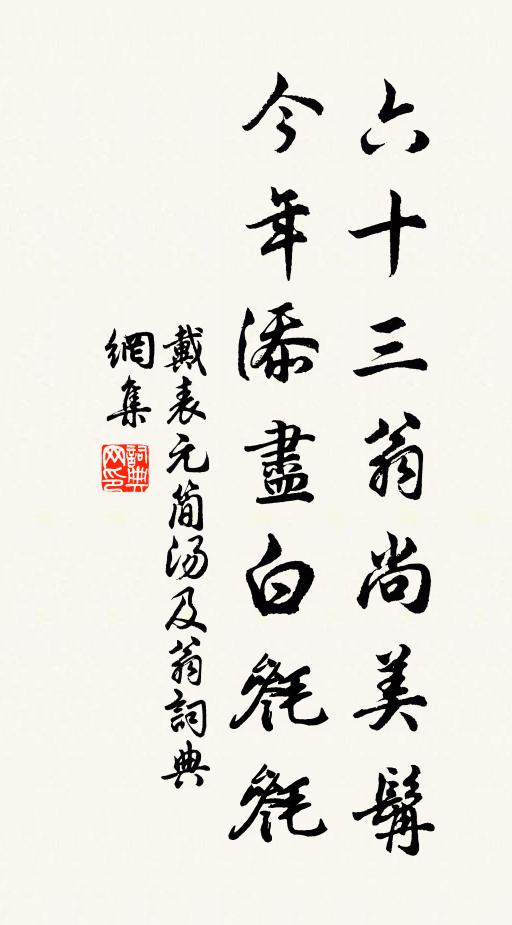 六十三翁尚美鬋
今年添盡白毿毿
戴表元簡汤及翁詞典
網集
詞典
网印